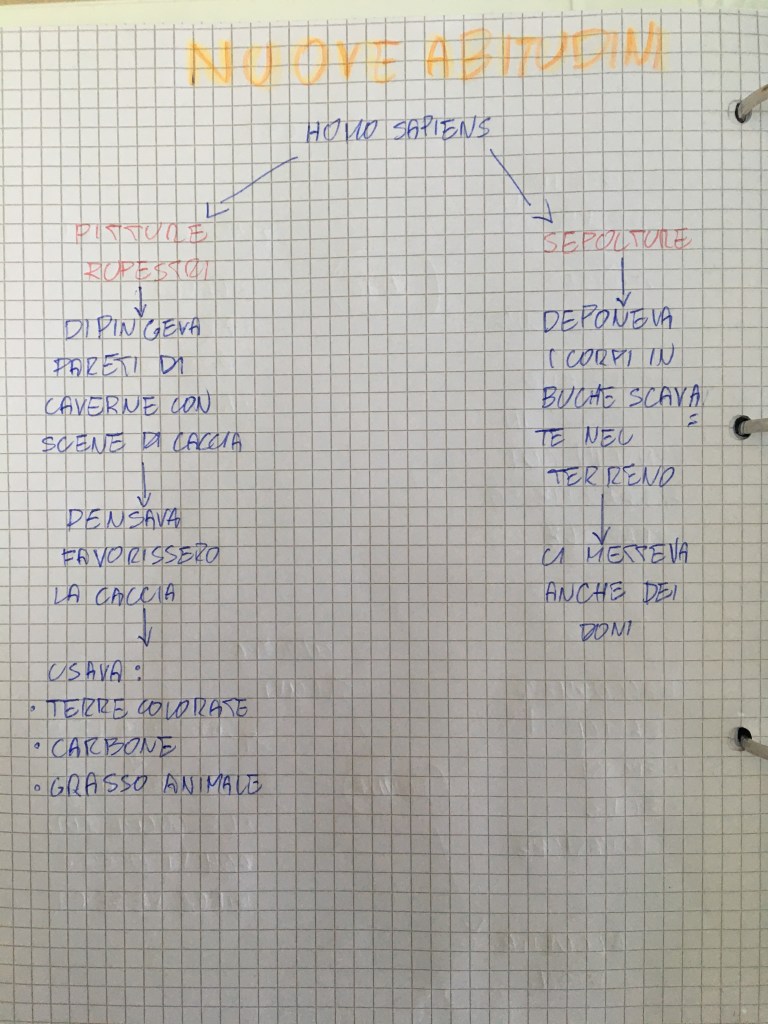 NUOVE ABITUDINI
HOMO SAPIENS
PITTURE
RUPESTRI
DIPINGEVA
PARETI DI
CAVERNE CON
SCENE DI CACCIA
PENSAVA
FAVORISSERO
LA CACCIA
USAVA:
• TERRE COLORATE
• CARBONE
• GRASSO ANIMALE
SEPOLTURE
DEPONEVA
I CORPI IN
BUCHE SCAVA=
TE NEL
TERRENO
CI METTEVA
ANCHE DEI
DONI